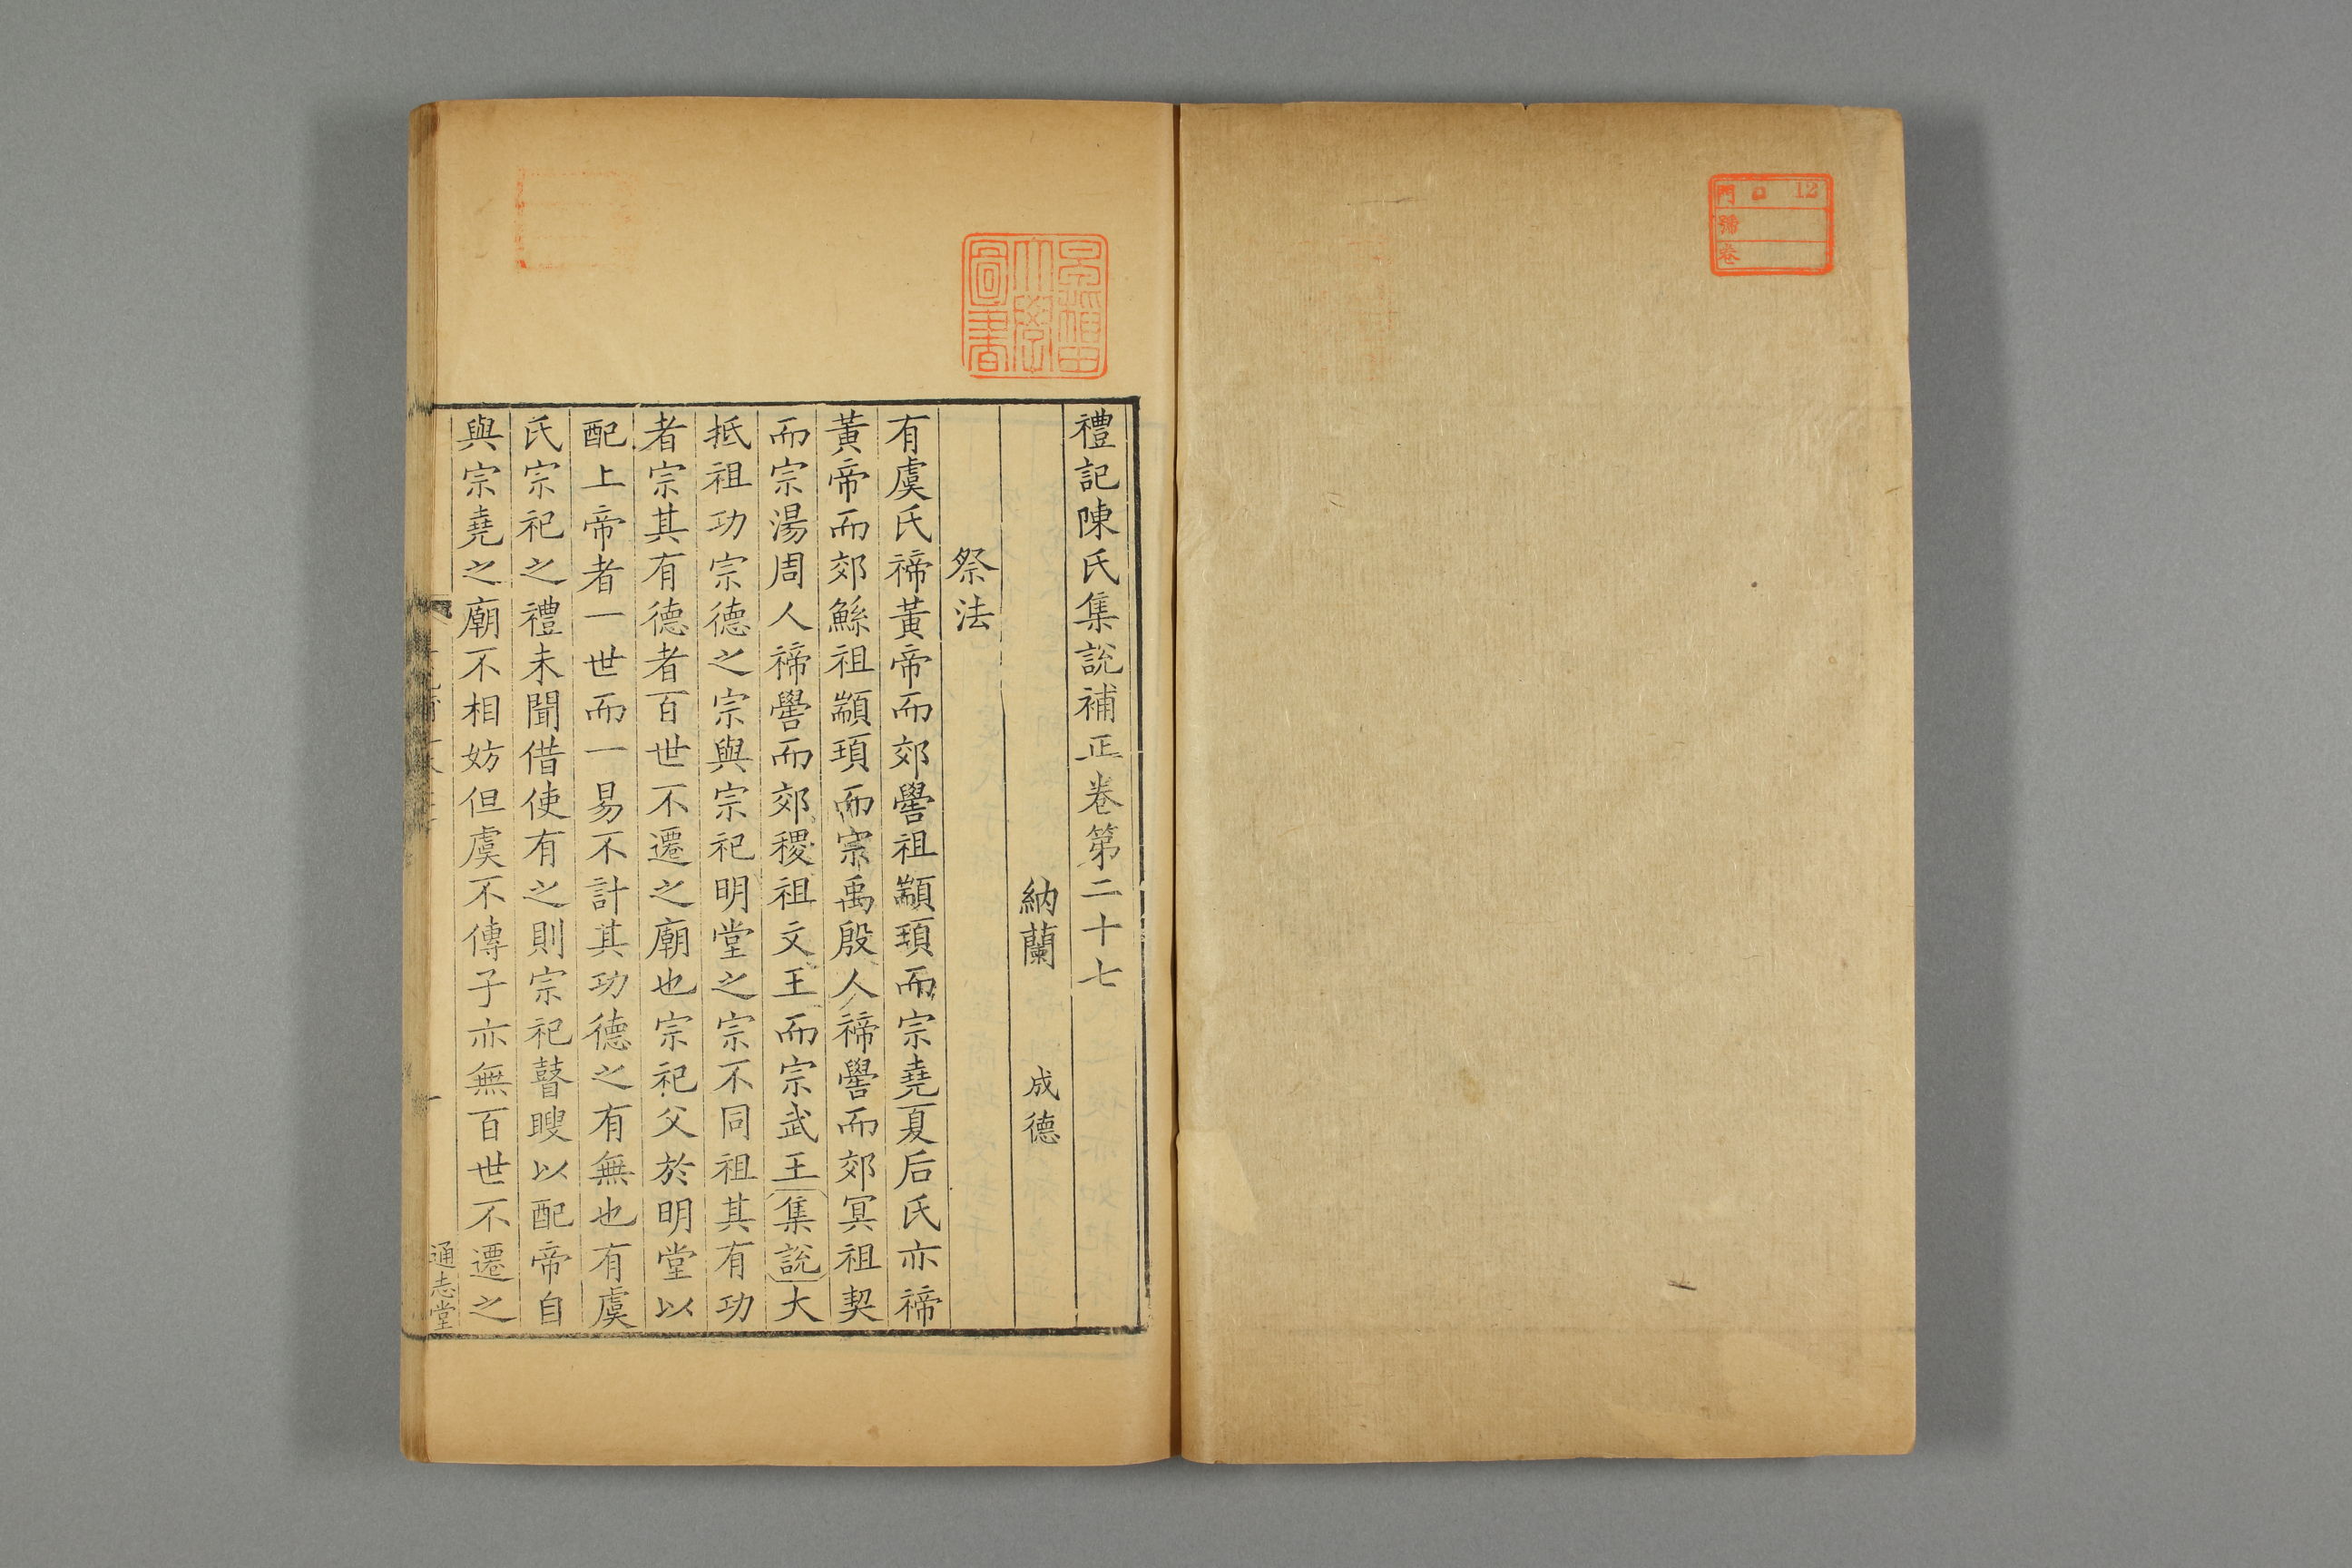 門 口 12
號
卷
早稻田大學圖書
禮記陳氏集說補正卷第二十七
納蘭 成德
祭法
有虞氏禘黃帝而郊嚳祖顓頊而宗堯夏后氏亦禘
黃帝而郊鯀祖顓頊而宗禹殷人禘嚳而郊冥祖契
而宗湯周人禘嚳而郊稷祖文王而宗武王集說大
抵祖功宗德之宗與宗祀明堂之宗不同祖其有功
者宗其有德者百世不遷之廟也宗祀父於明堂以
配上帝者一世而一易不計其功德之有無也有虞
氏宗祀之禮未聞借使有之則宗祀瞽瞍以配帝自
與宗堯之廟不相妨但虞不傳子亦無百世不遷之
一
通志堂